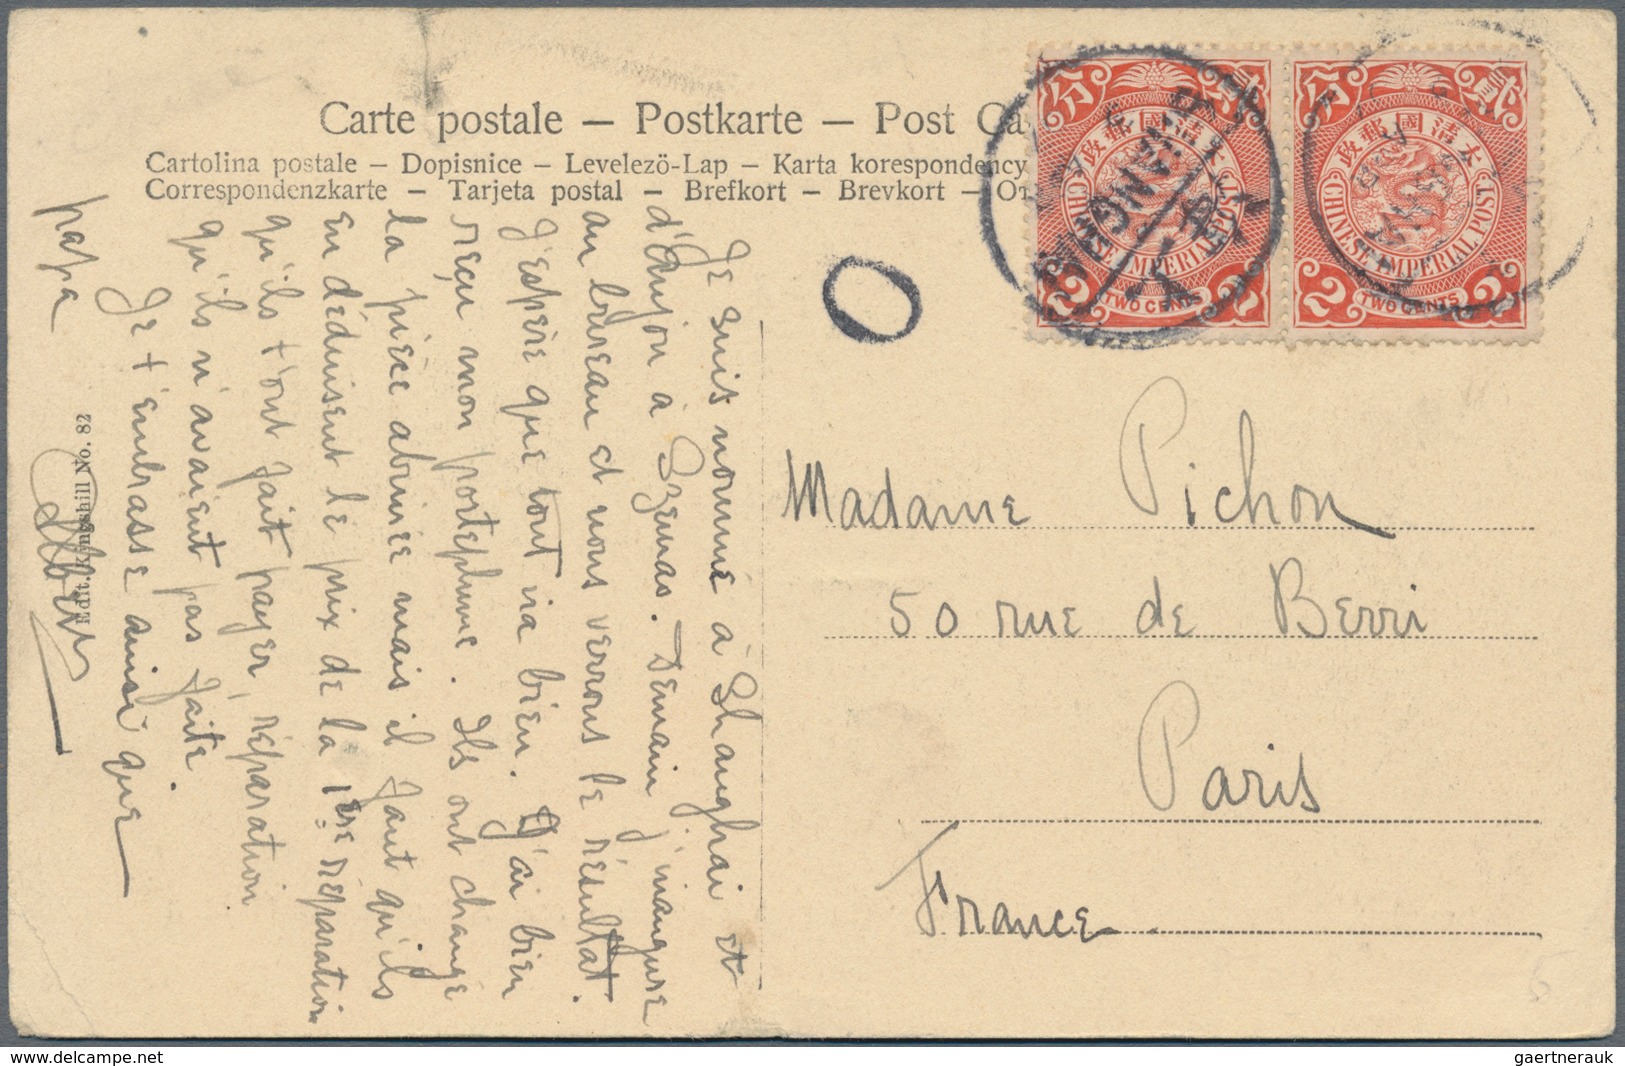 Carte postale – Postkarte – Post Ca
Cartolina postale – Dopisnice – Levelező-Lap – Karta korespondency
Correspondenzkarte – Tarjeta postal – Brefkort – Brevkort – От
分 貳
大清國郵政
CHINESE IMPERIAL POST
2 TWO CENTS 2
分 貳
大清國郵政
CHINESE IMPERIAL POST
2 TWO CENTS 2
Je suis nommé à Shanghai et
d'Anjou à Szemao. Demain j'inaugure
au bureau et nous verrons le résultat.
J'espère que tout ira bien. J'ai bien
reçu mon porteplume. Ils ont changé
la pièce abimée mais il faut qu'ils
en déduisent le prix de la 1ère réparation
qu'ils t'ont fait payer, réparation
qu'ils n'avaient pas faite.
Je t'embrasse ainsi que
papa
Edit. Kingshill No. 82
Madame Pichon
50 rue de Berri
Paris
France
5
www.delcampe.net
gaertnerauk